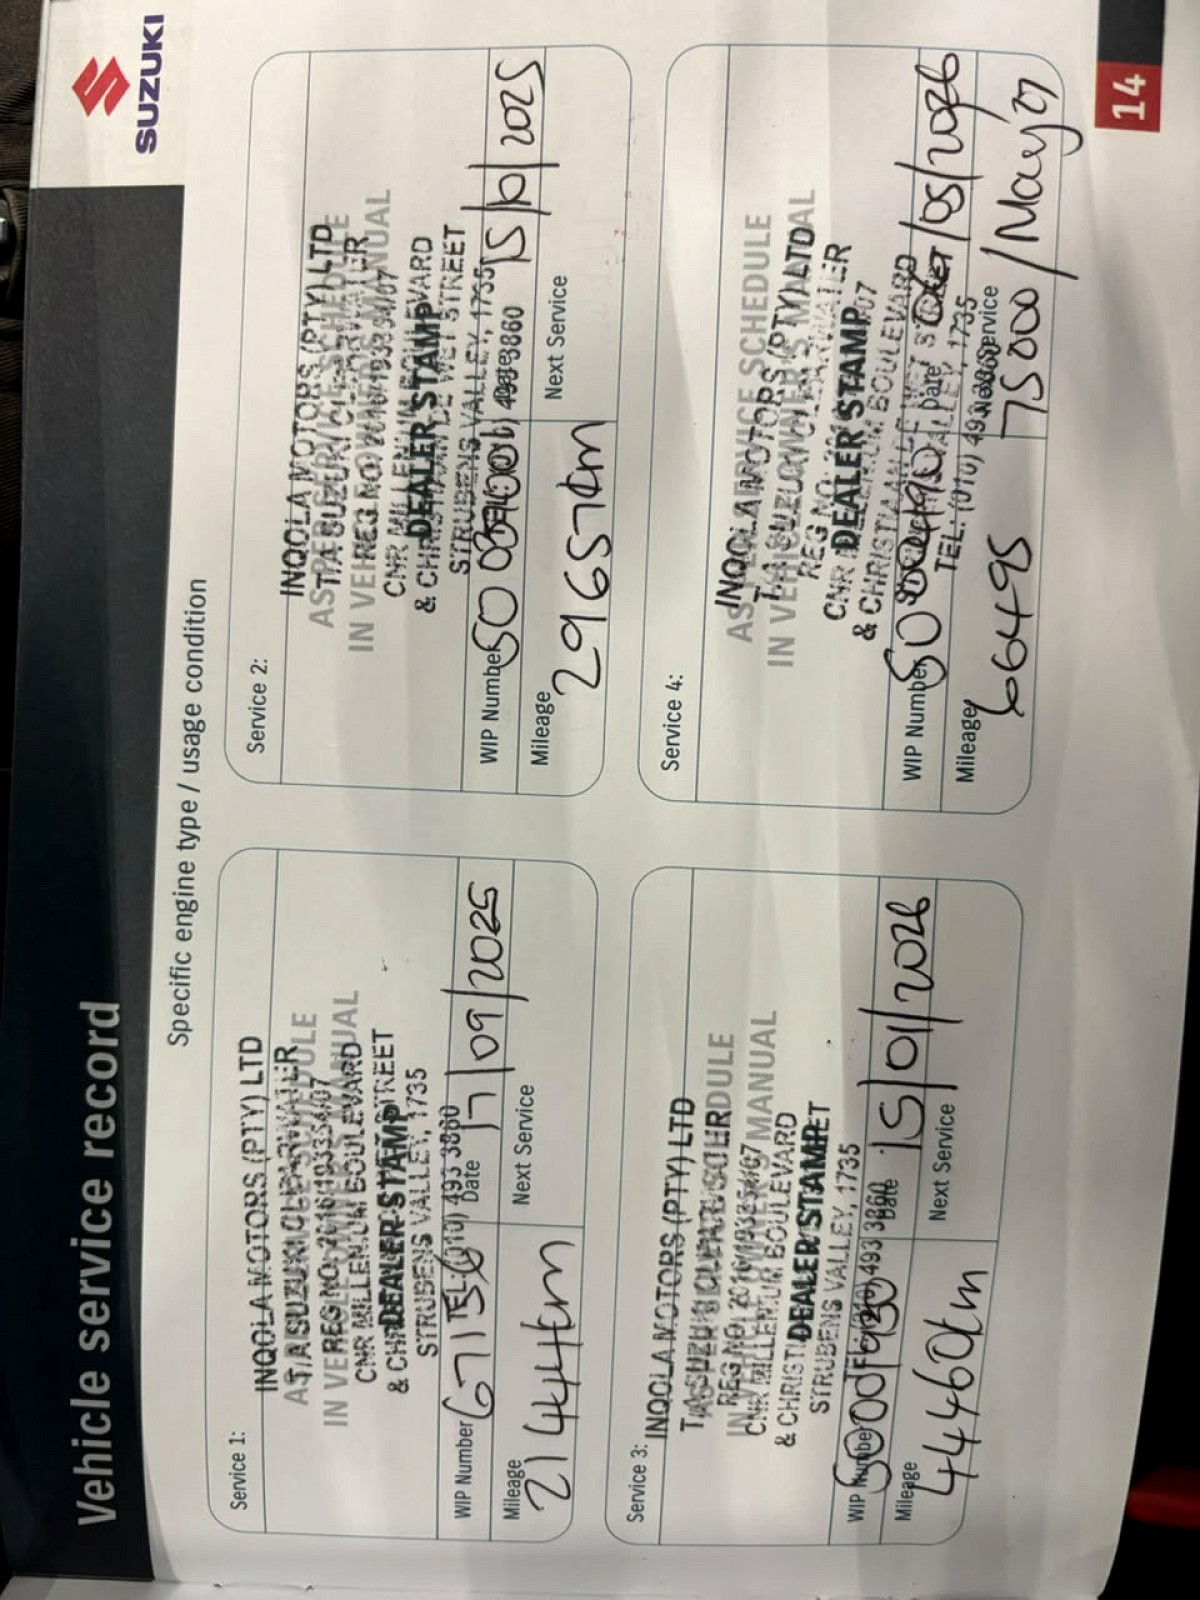 Vehicle service record
SUZUKI
Specific engine type / usage condition
Service 1:
INQOLA MOTORS (PTY) LTD
T/A SUZUKI CLEARWATER
AS PER SERVICE SCHEDULE
REG NO. 2016/193354/07
IN VEHICLE OWNER'S MANUAL
CNR MILLENIUM BOULEVARD
& CHRISTIAAN DE WET STREET
DEALER STAMP
STRUBENS VALLEY, 1735
TEL: (010) 493 3860
WIP Number 67156 Date 17/09/2025
Mileage 21444km Next Service
Service 2:
INQOLA MOTORS (PTY) LTD
AS PER SERVICE SCHEDULE
T/A SUZUKI CLEARWATER
IN VEHICLE OWNER'S MANUAL
REG NO. 2016/193354/07
CNR MILLENIUM BOULEVARD
DEALER STAMP
& CHRISTIAAN DE WET STREET
STRUBENS VALLEY, 1735
TEL: (010) 493 3860
WIP Number Date 15/10/2025
Mileage 29657km Next Service
Service 3:
INQOLA MOTORS (PTY) LTD
T/A SUZUKI CLEARWATER
AS PER SERVICE SCHEDULE
REG NO. 2016/193354/07
IN VEHICLE OWNER'S MANUAL
CNR MILLENIUM BOULEVARD
& CHRISTIAAN DE WET STREET
DEALER STAMP
STRUBENS VALLEY, 1735
TEL: (010) 493 3860
WIP Number Date 15/01/2026
Mileage 44460km Next Service
Service 4:
INQOLA MOTORS (PTY) LTD
AS PER SERVICE SCHEDULE
T/A SUZUKI CLEARWATER
IN VEHICLE OWNER'S MANUAL
REG NO. 2016/193354/07
CNR MILLENIUM BOULEVARD
DEALER STAMP
& CHRISTIAAN DE WET STREET
STRUBENS VALLEY, 1735
TEL: (010) 493 3860
WIP Number Date /05/2026
Mileage 66495 Next Service 75000/May 27
14